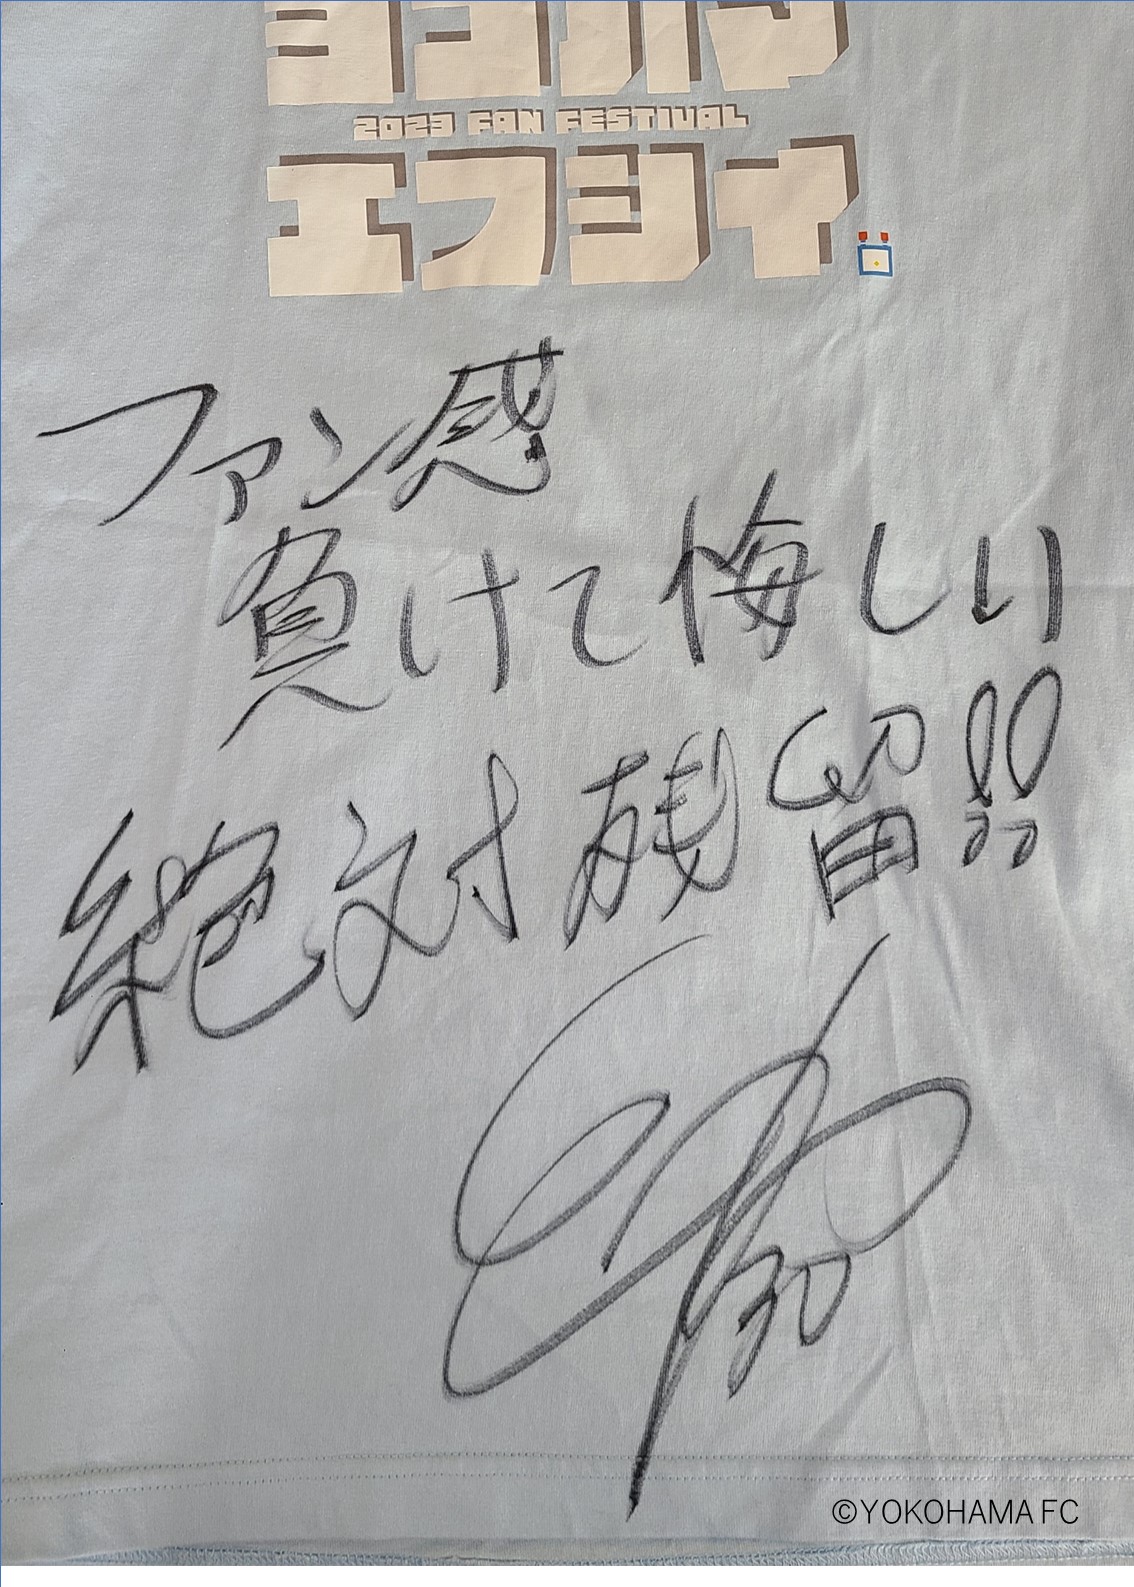 ヨコハマ
2023 FAN FESTIVAL
エフシイ
ファン感
負けて悔しい
絶対残留!!
30
©YOKOHAMA FC